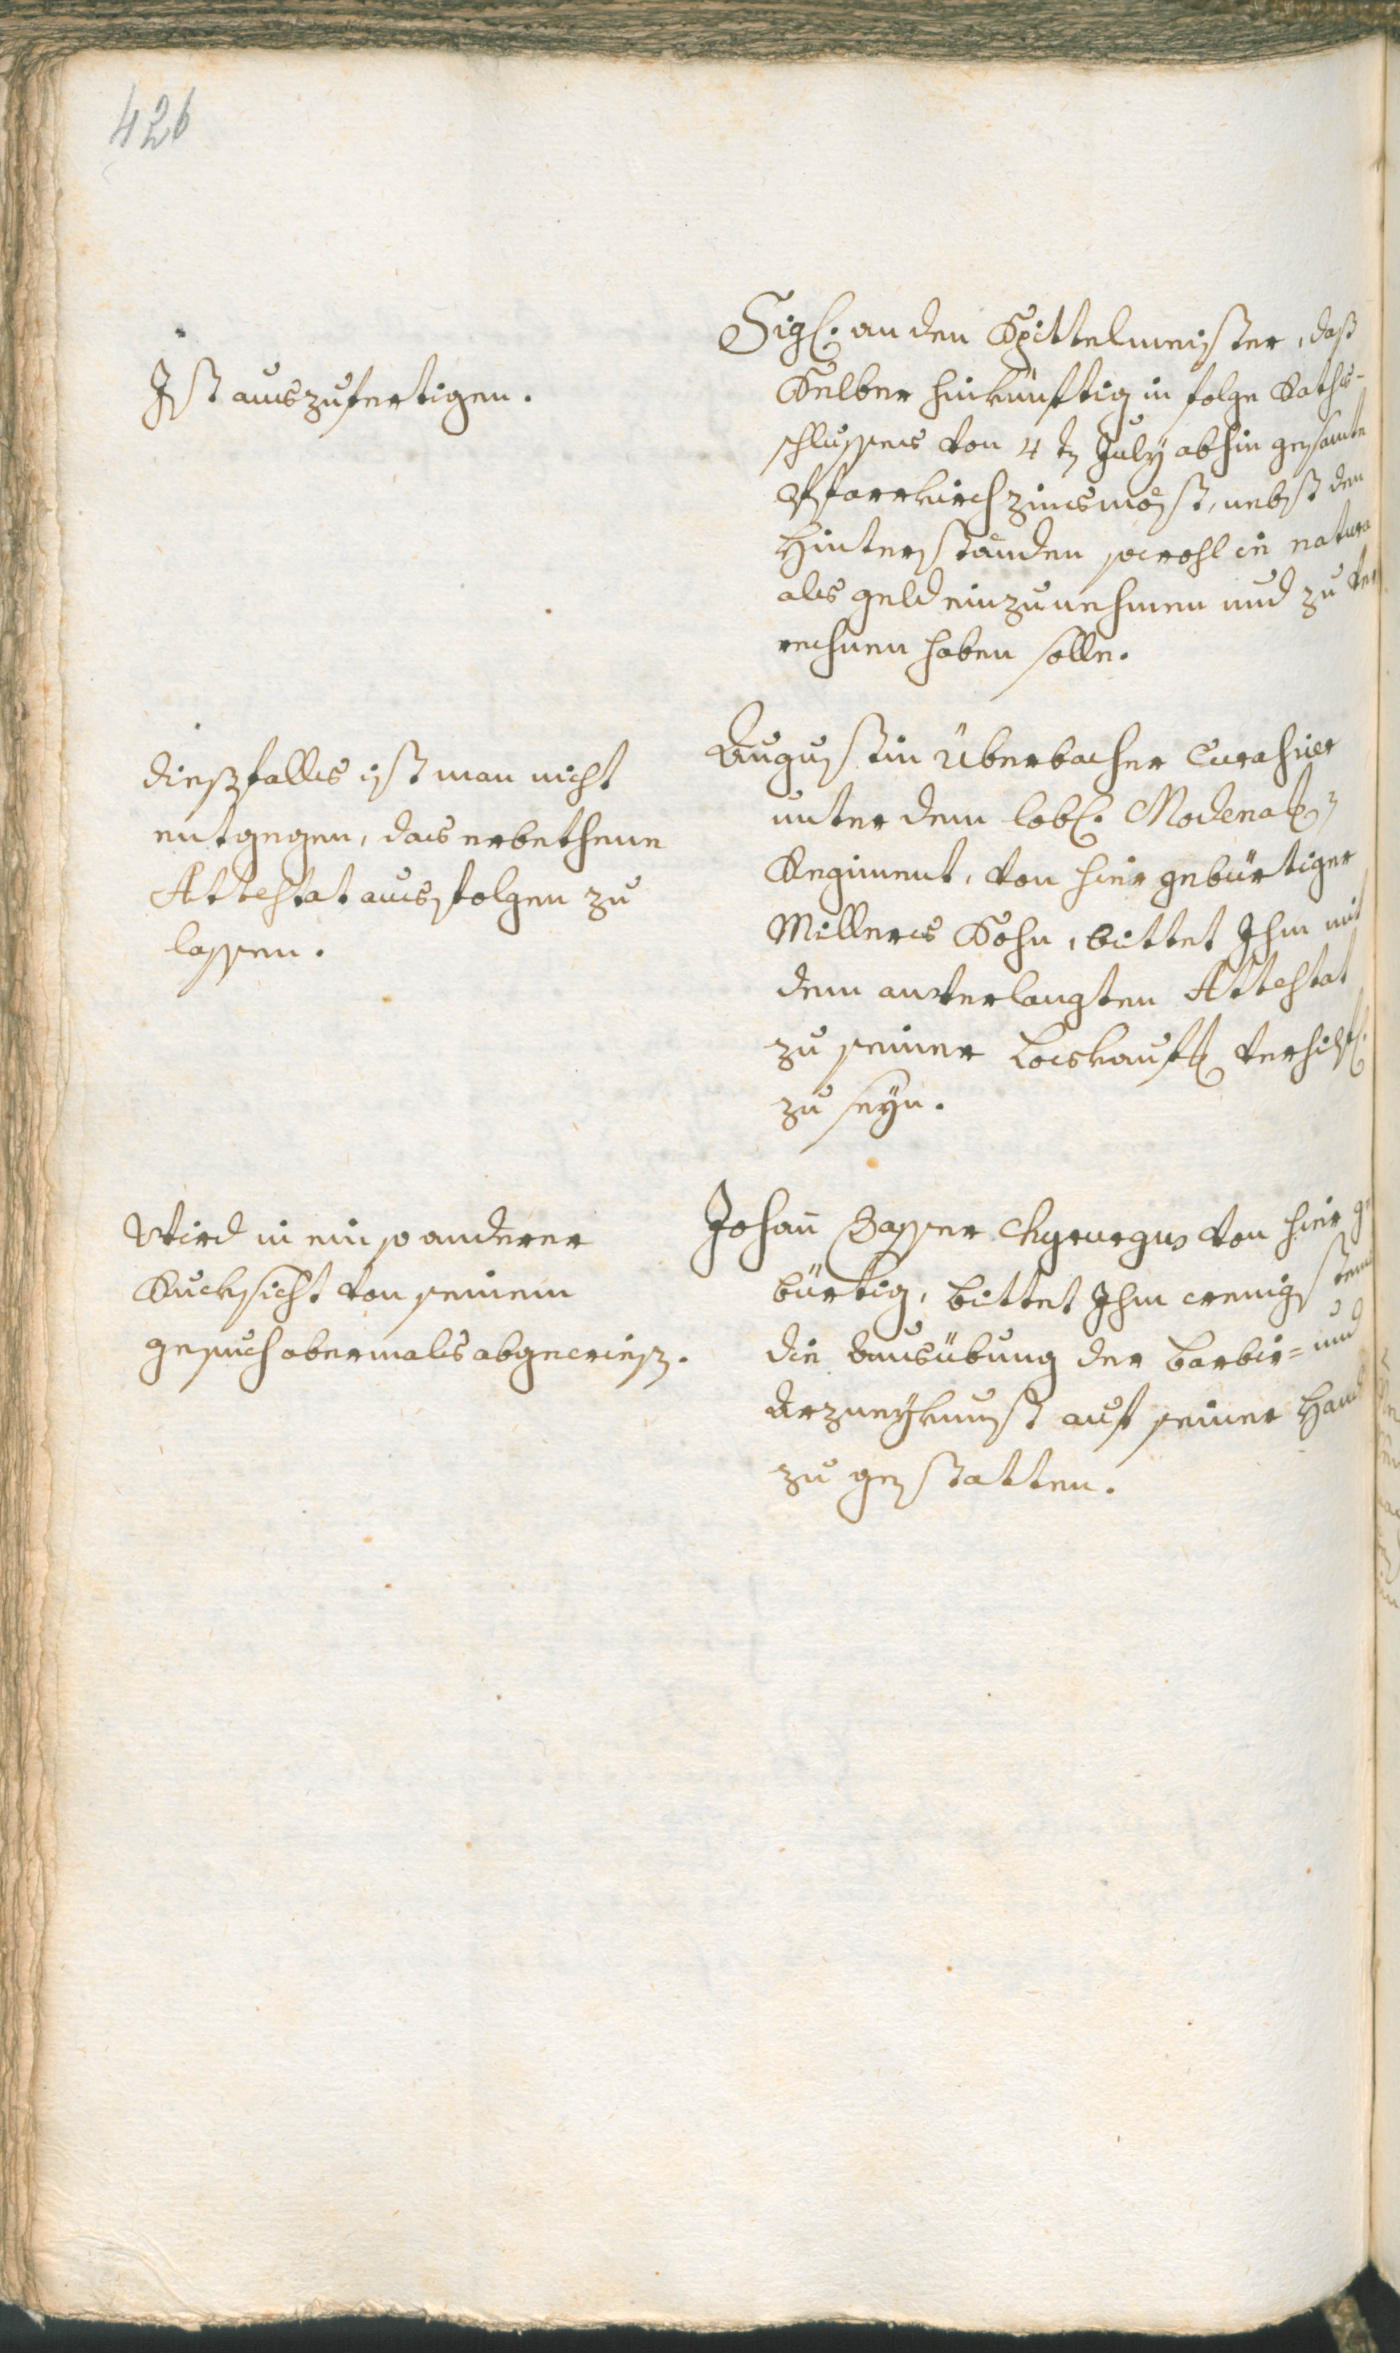 426
Ist auszufertigen.
Sigl. an den Spittelmeister, daß
Selber hinkünftig in folge Raths-
schlusses von 4 tn July abhin gesamte
Pfarrkirch zinsmöst, nebst den
Hinterständen sowohl in natura
als geld einzunehmen und zu ver
rechnen haben solle.
dießfalls ist man nicht
entgegen, das erbethene
Attestat ausfolgen zu
lassen.
Augustin Überbacher Curahsier
unter dem lobl. Modenas
Regiment, von hier gebürtiger
Millers Sohn, bittet Ihm mit
dem anverlangten Attestat
zu seiner Loskauf verhilfl.
zu seyn.
Wird in ein so anderer
Rucksicht von seinem
gesuch abermals abgewiesz.
Johan̄ Gasser Chyrurgus von hier ge
bürtig, bittet Ihm wenigstens
die Ausübung der Barbir= und
Arzneykunst auf seiner Hand
zu gestatten.